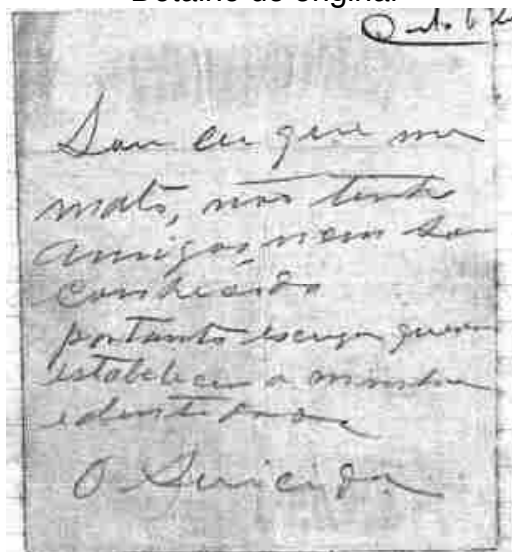 Detalhe do original
Sou eu que me
mato, não tendo
amigos nem sou
conhecido
portanto escuso querer
estabelecer a minha
identidade
O Suicida